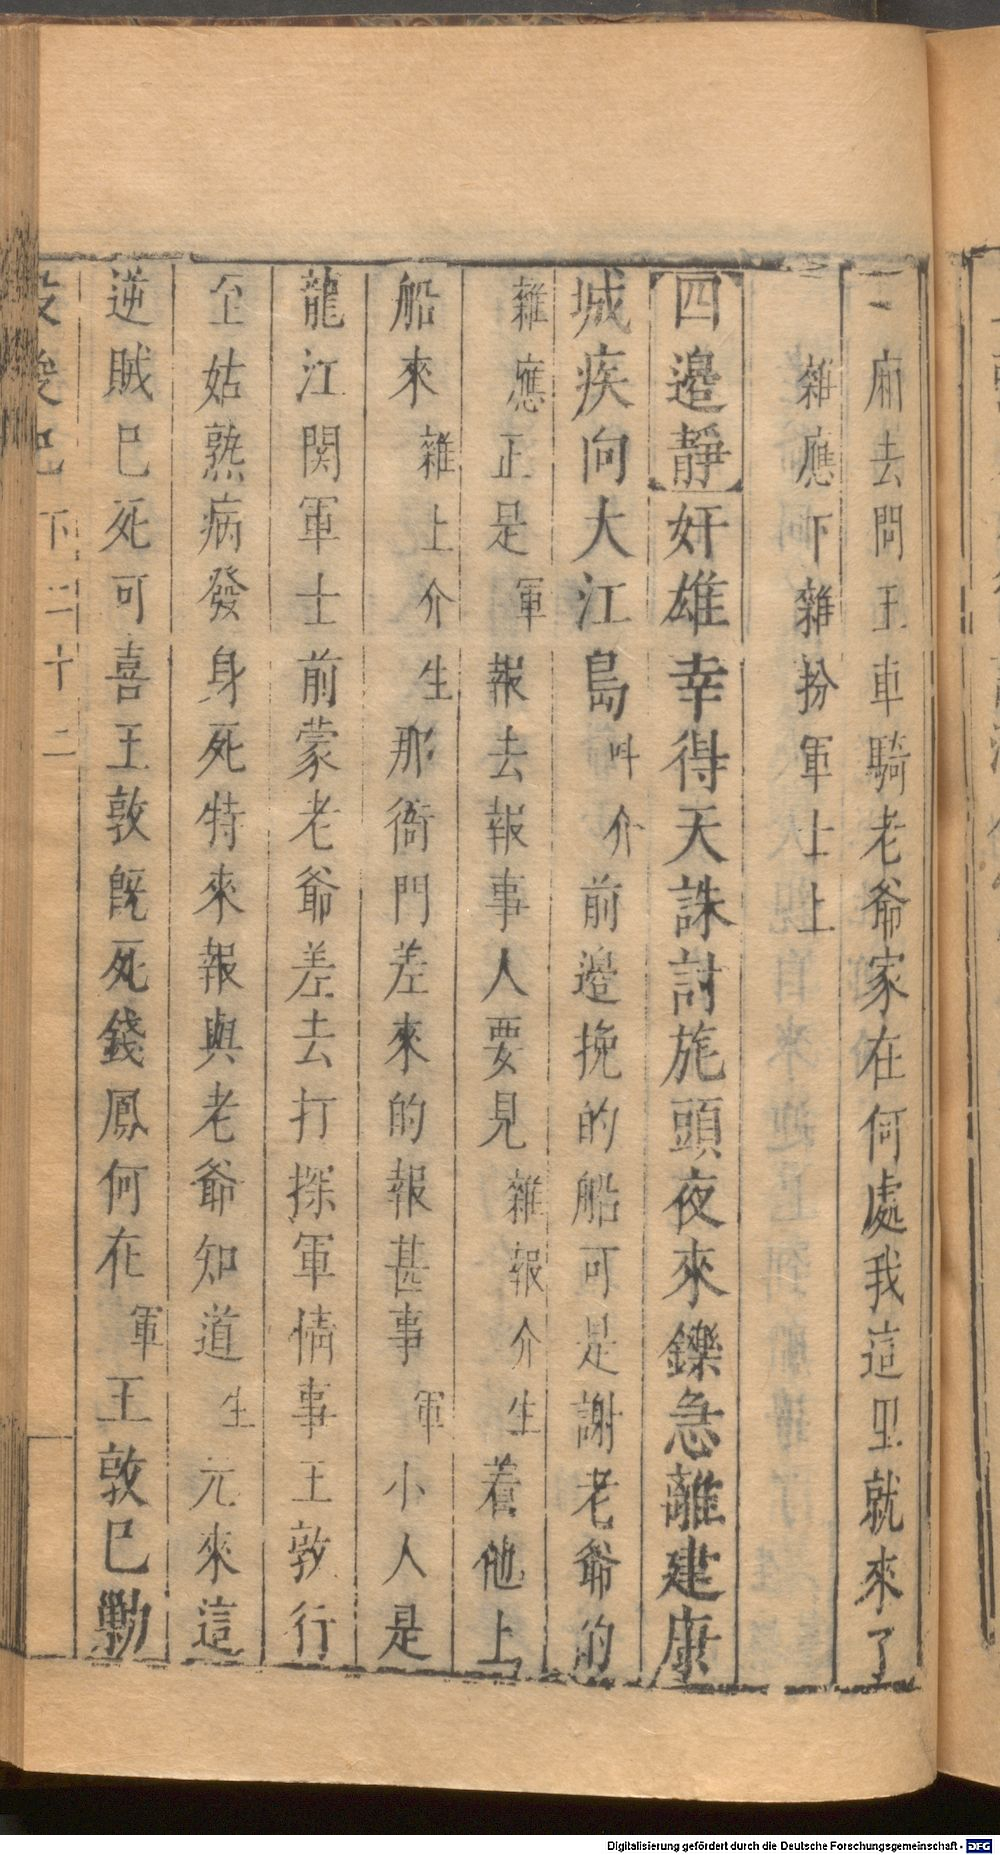 一廂去問王車騎老爺家在何處我這里就來了
雜應下雜扮軍士上
四邉靜奸雄幸得天誅討旄頭夜來鑠急離建康
城疾向大江島叫介前邉挽的船可是謝老爺的
雜應正是軍報去報事人要見雜報介生着他上
船來雜上介生那衙門差來的報甚事軍小人是
龍江関軍士前蒙老爺差去打探軍情事王敦行
至姑熟病發身死特來報與老爺知道生元來這
逆賊巳死可喜王敦既死錢鳳何在軍王敦巳勦
下二十二
Digitalisierung gefördert durch die Deutsche Forschungsgemeinschaft - DFG